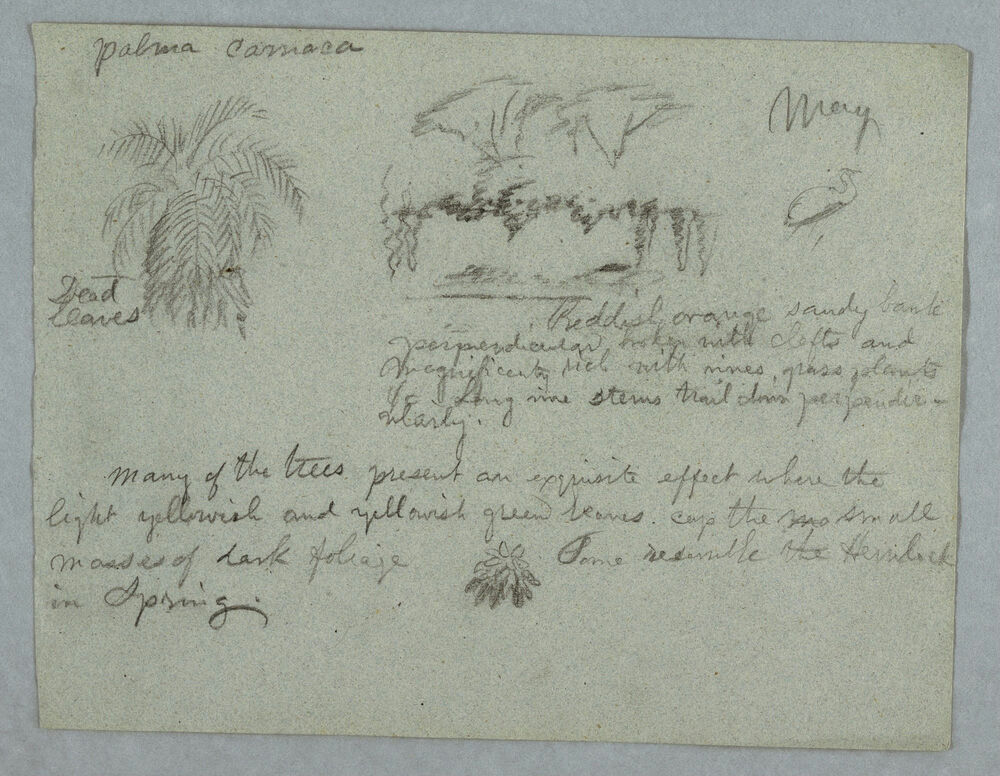 palma carnaca
May
Dead
Leaves
Reddish orange sandy bank
perpendicular broken with clefts and
magnificently rich with vines, grass, plants
&c Long vine stems trail down perpendic-
ularly.
Many of the trees present an exquisite effect where the
light yellowish and yellowish green leaves cap the small
masses of dark foliage Some resemble the Hemlock
in Spring.